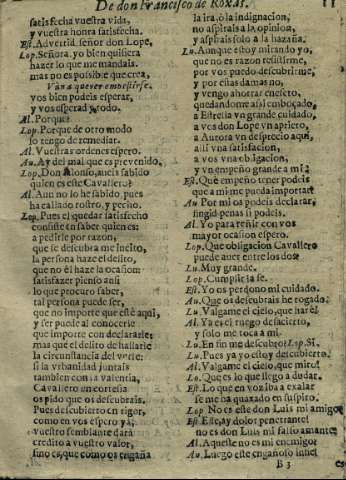 De don Francisco de Roxas. 11
satisfecha vuestra vida,
y vuestra honra satisfecha.
Est. Advertid, señor don Lope,
Lop. Señora, yo bien quisiera
hazer lo que me mandais,
mas no es possible que crea,
Van a querer embestirse.
vos bien podeis esperar,
y vos esperad y todo.
Al. Porque?
Lop. Porque de otro modo
lo tengo de remediar.
Al. Vuestras ordenes espero.
Au. Ay de mi al mal que es prevenido,
Lop. Don Alonso, aueis sabido
quien es este Cavallero?
Al. Aun no lo he sabido, pues
ha callado rostro, y pecho.
Lop. Pues el quedar satisfecho
consiste en saber quien es:
a pedirle por razon,
que se descubra me incito,
la persona haze el delito,
que no èl haze la ocasion:
satisfazer pienso assi
lo que procuro saber,
tal persona puede ser,
que no importe que estè aqui,
y ser puede al conocerle
que importe con declararle;
mas que el delito de hallarle
la circunstancia del verle:
si la vrbanidad juntais
tambien con la valentia,
Cavallero en cortesia
os pido que os descubrais.
Pues descubierto en rigor,
como en vos espero ya,
vuestro semblante darà
credito a vuestro valor,
sino es, que como os engaña
la ira, ò la indignacion,
no aspirais a la opinion,
y aspirais solo a la hazaña.
Lu. Aunque estoy mirando yo,
que no es razon resistirme,
por vos puedo descubrirme,
y por estas damas no,
y vengo ahorrar en efeto,
quedandome assi embozado,
a Estrella vn grande cuidado,
a vos don Lope vn aprieto,
a Aurora vn desprecio aqui,
alli vna satisfacion,
a vos vna obligacion,
y vn empeño grande a mi?
Est. Què empeño tener podeis
que a mi me pueda importar?
Au. Por mi os podeis declarar,
fingid penas si podeis.
Al. Yo para reñir con vos
mayor ocasion espero.
Lop. Que obligacion Cavallero
puede auer entre los dos?
Lu. Muy grande.
Lop. Cumplirla sè.
Est. Yo os perdono mi cuidado.
Au. Que os descubrais he rogado.
Lu. Valgame el cielo, que harè!
Al. Ya es el ruego desacierto,
y solo me toca a mi.
Lu. En fin me descubro? Lop. Si.
Lu. Pues ya yo estoy descubierto.
Al. Valgame el cielo, que miro!
Lo. Que es lo que llego a dudar.
Est. Lo que en voz iba a exalar
se me ha quaxado en suspiro.
Lop. No es este don Luis mi amigo?
Est. Este, ay dolor penetrante!
no es don Luis mi falso amante?
Al. Aqueste no es mi enemigo?
Au. Luego este engañoso infiel
B 3 es